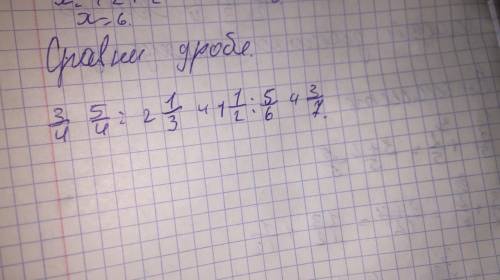 x=6.
Сравни дроби.
3/4 5/4: 2 1/3 и 1 1/2: 5/6 и 3/7.